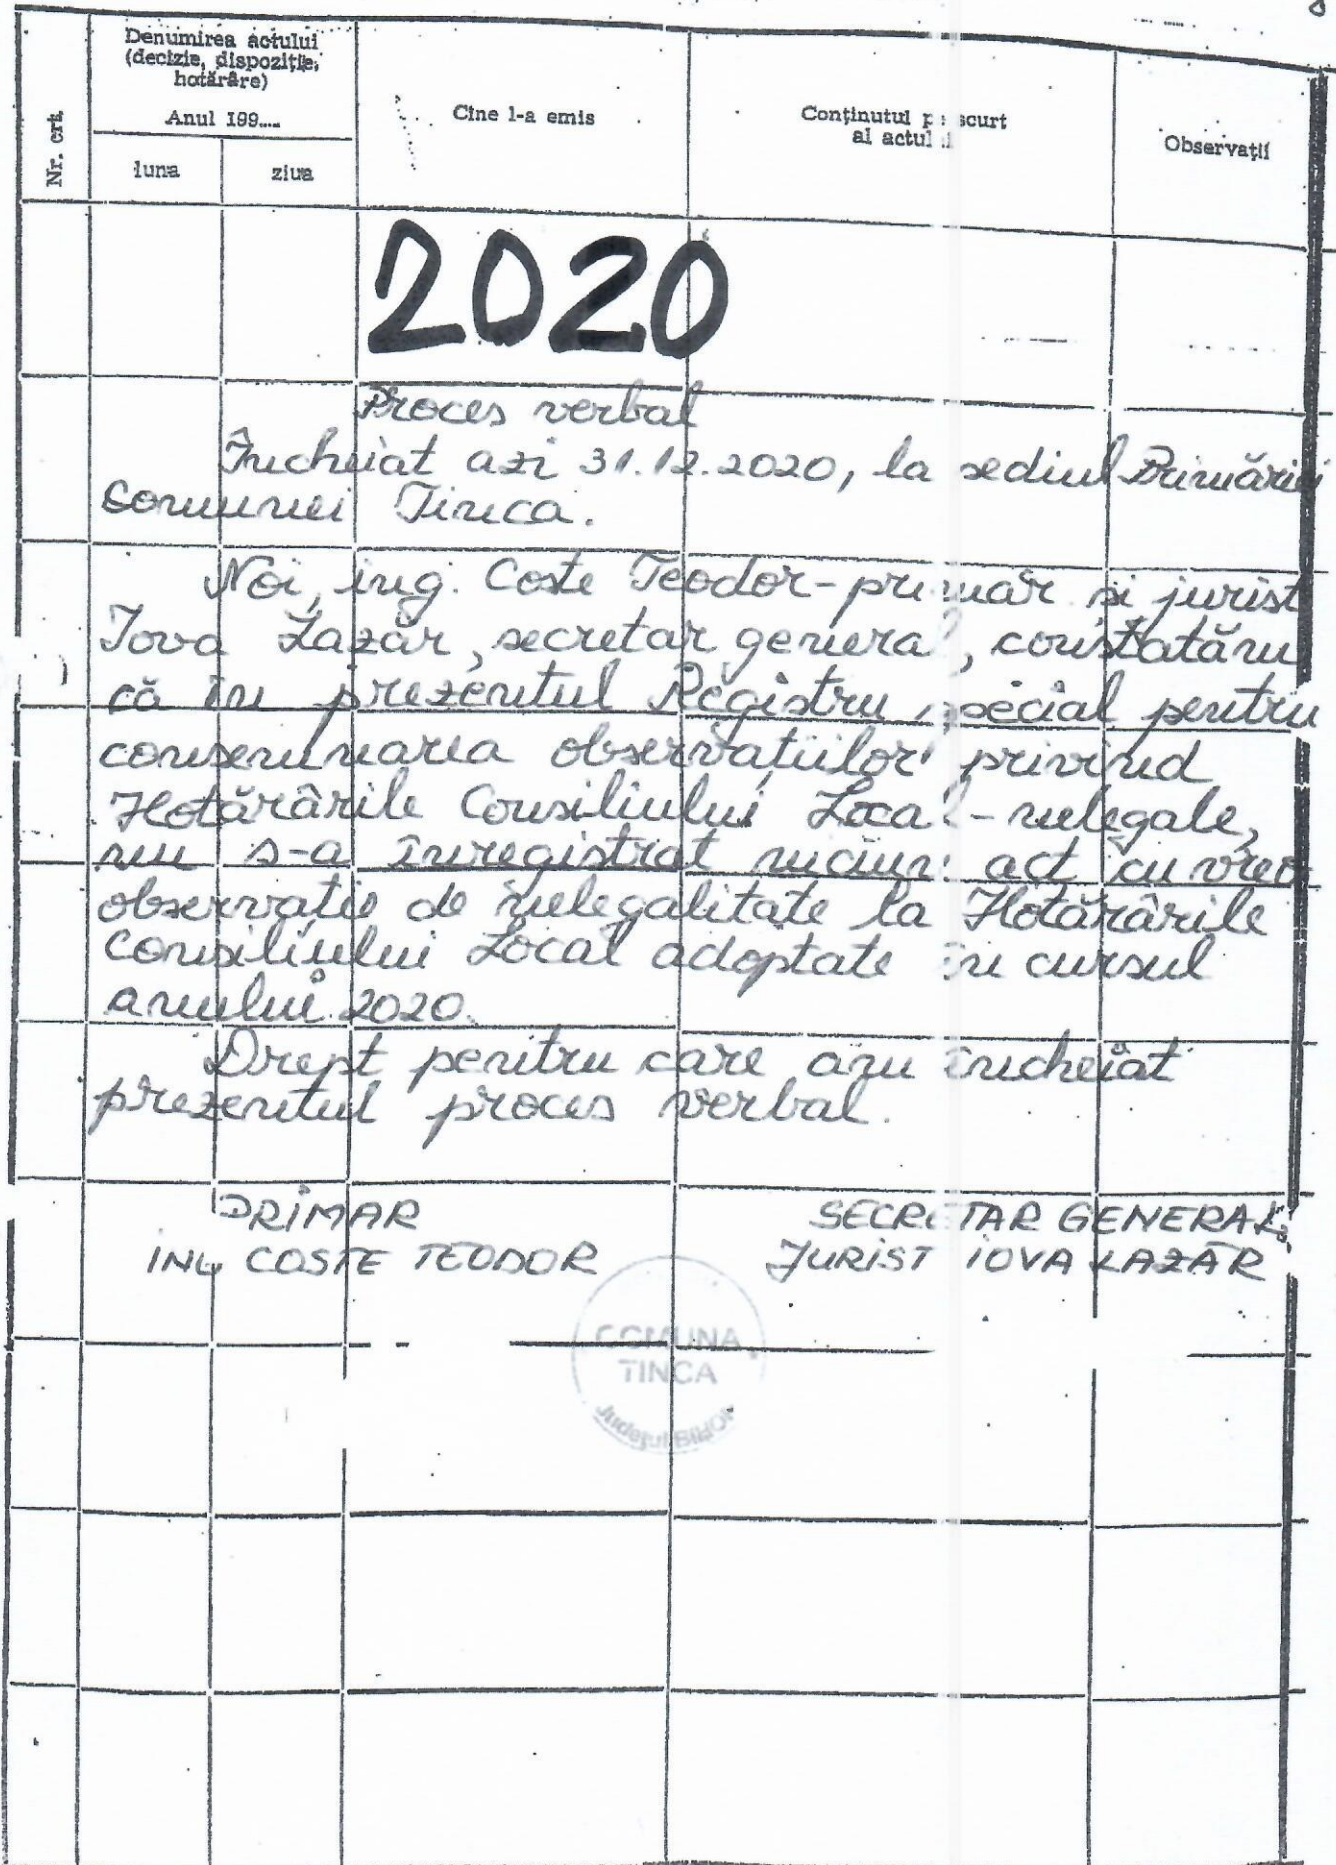 Nr. crt.
Denumirea actului
(decizie, dispoziție,
hotărâre)
Anul 199....
luna
ziua
Cine l-a emis
Conținutul pe scurt
al actului
Observații
2020
Proces verbal
Încheiat azi 31.12.2020, la sediul Primăriei
Comunei Tinca.
Noi, ing. Coste Teodor-primar și jurist
Iova Lazăr, secretar general, constatăm
că în prezentul Registru special pentru
consemnarea observațiilor privind
Hotărârile Consiliului Local-nelegale,
nu s-a înregistrat niciun act cu vreo
observație de nelegalitate la Hotărârile
Consiliului Local adoptate în cursul
anului 2020.
Drept pentru care am încheiat
prezentul proces verbal.
PRIMAR
ING COSTE TEODOR
SECRETAR GENERAL,
JURIST IOVA LAZĂR
COMUNA
TINCA
Județul BIHOR